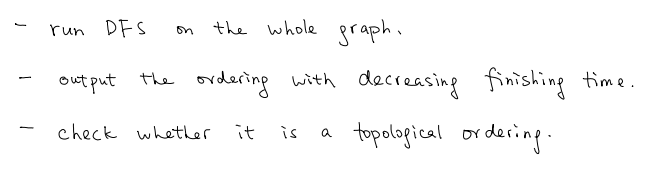 - run DFS on the whole graph.
- output the ordering with decreasing finishing time.
- check whether it is a topological ordering.